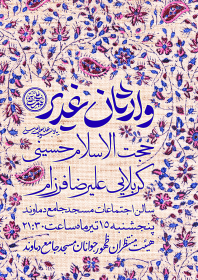 وارثان غدیر
حجت الاسلام حسینی
کربلایی علیرضا فرزام
سالن اجتماعات مسجد جامع دماوند
پنجشنبه ۱۵ تیرماه ساعت ۲۱:۳۰
هیئت منتظران ظهور جوانان مسجد جامع دماوند